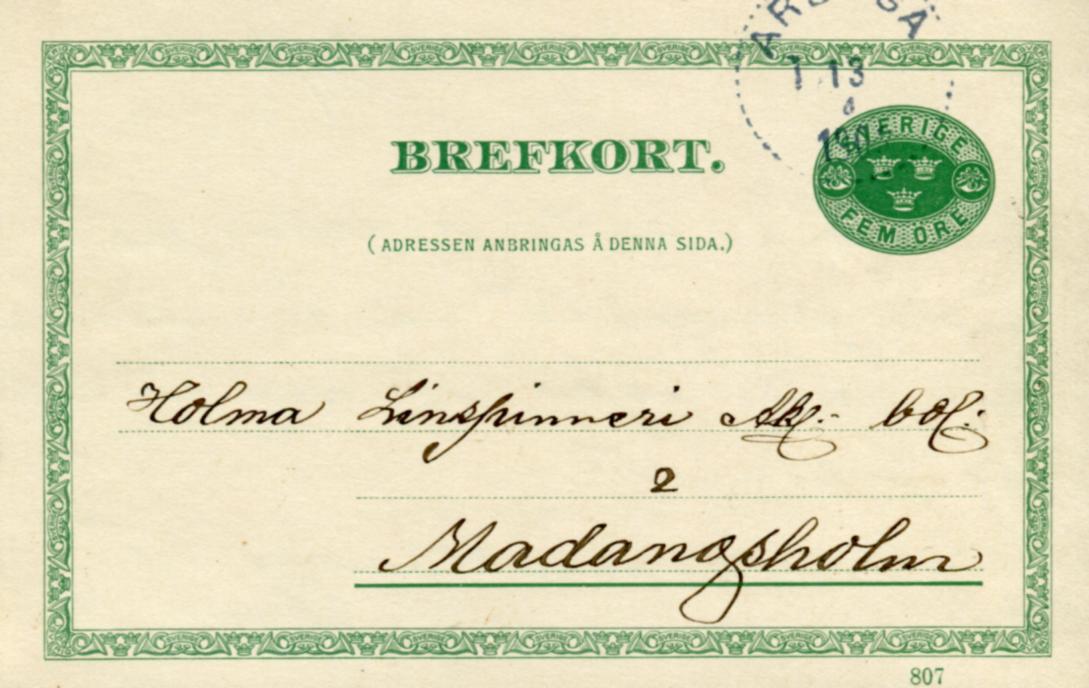 1 13
SVERIGE
FEM ÖRE
BREFKORT.
(ADRESSEN ANBRINGAS Å DENNA SIDA.)
Holma Linspinneri Ak. bol.
2
Madangsholm
807